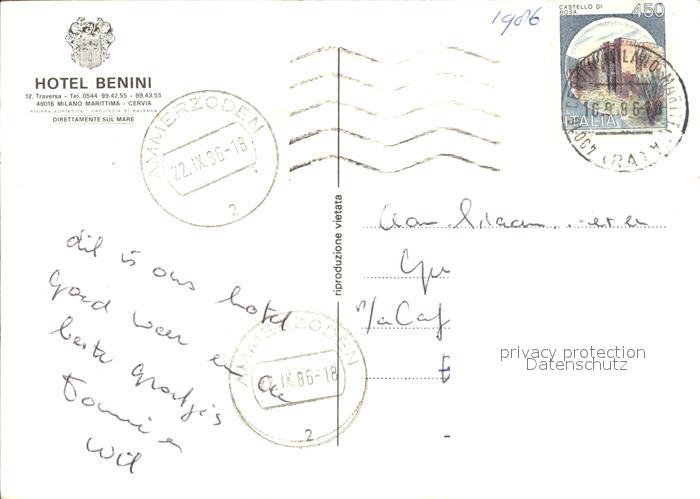 1986
CASTELLO DI
BOSA
450
ITALIA
16.9.86
(RA)
HOTEL BENINI
12. Traversa - Tel. 0544 99.47.55 - 99.43.55
48016 MILANO MARITTIMA - CERVIA
RIVIERA ADRIATICA - PROVINCIA DI RAVENNA
DIRETTAMENTE SUL MARE
AMMERZODEN
22.IX.86-18
2
riproduzione vietata
Aan
dit is ons hotel
goed weer en de
beste groetjes
Wil
AMMERZODEN
22.IX.86-18
2
privacy protection
Datenschutz